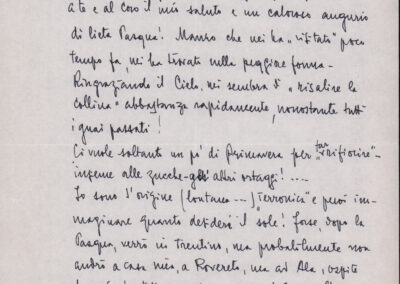 a te e al coro il mio saluto e un caloroso augurio
di lieta Pasqua! Mauro che mi ha „visitato" poco
tempo fa, mi ha trovato nella peggiore forma.
Ringraziando il Cielo, mi sembra di „risalire la
collina" abbastanza rapidamente, nonostante tutti
i guai passati!
Ci vuole soltanto un po' di Primavera per far „rifiorire"
insieme alle zucche gli altri ortaggi! ....
Io sono d'origine (lontana ---) „terronica" e puoi im-
maginare quanto desideri il sole! Forse, dopo la
Pasqua, verrò in trentino, ma probabilmente non
andrò a casa mia, a Rovereto, ma ad Ala, ospite